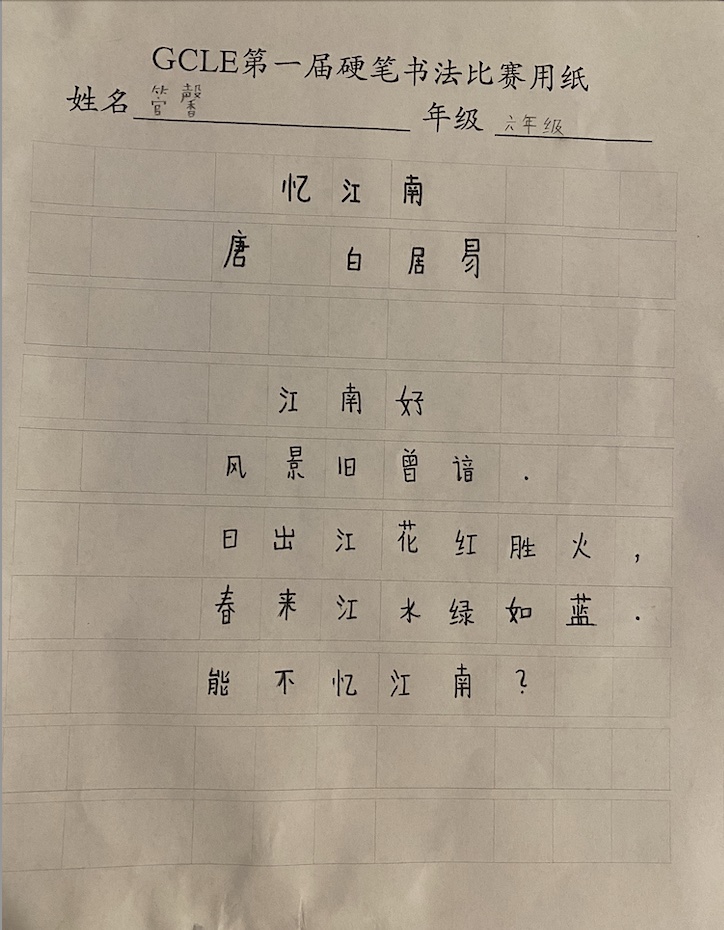 GCLE第一届硬笔书法比赛用纸
姓名 管馨 年级 六年级
忆江南
唐 白居易
江南好
风景旧曾谙.
日出江花红胜火,
春来江水绿如蓝.
能不忆江南?